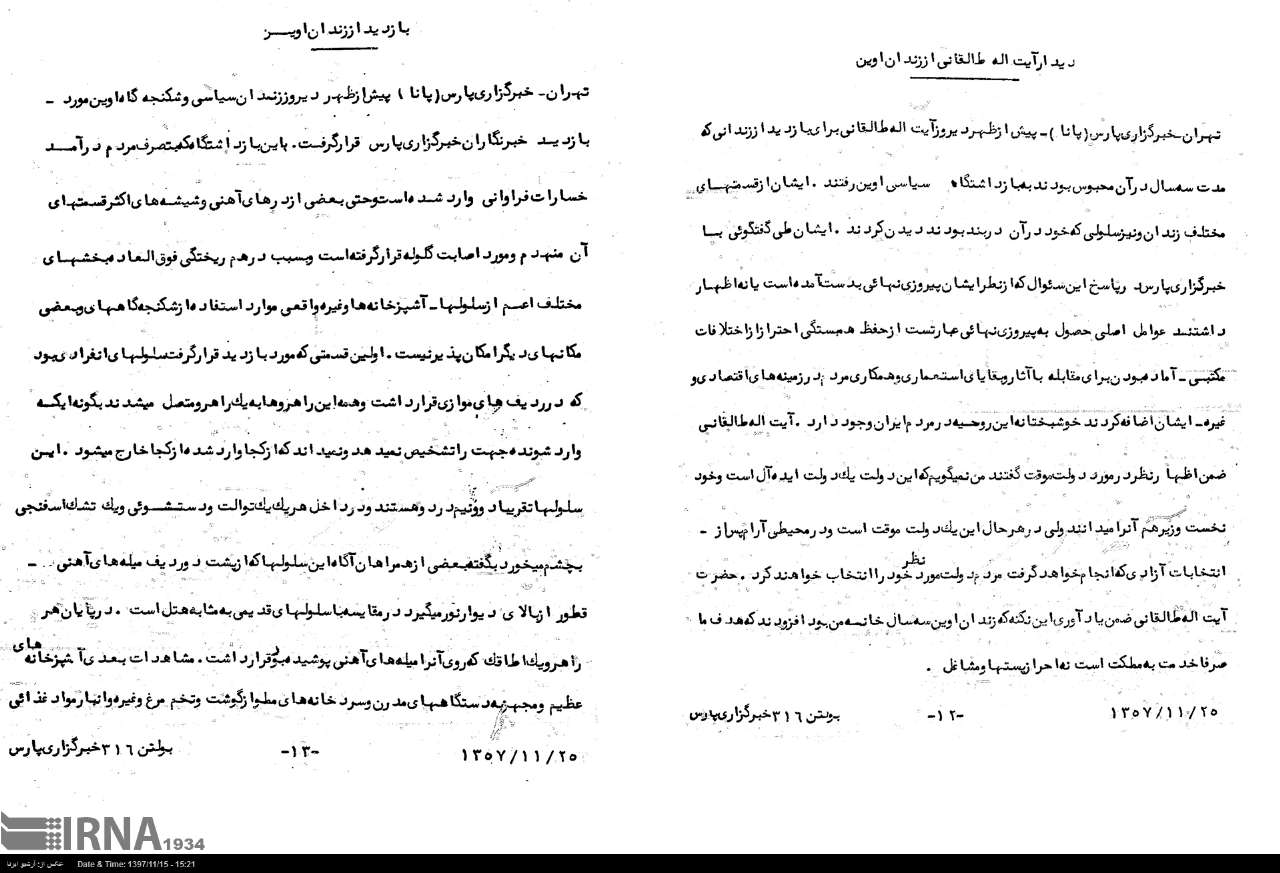 دیدار آیت اله طالقانی از زندان اوین
تهران ـ خبرگزاری پارس (پانا) ـ پیش از ظهر دیروز آیت اله طالقانی برای بازدید از زندانی که
مدت سه سال در آن محبوس بودند به بازداشتگاه سیاسی اوین رفتند . ایشان از قسمتهای
مختلف زندان و نیز سلولی که خود در آن دربند بودند دیدن کردند . ایشان طی گفتگوئی با
خبرگزاری پارس در پاسخ این سئوال که از نظر ایشان پیروزی نهائی بدست آمده است یا نه اظهار
داشتند عوامل اصلی حصول به پیروزی نهائی عبارتست از حفظ همبستگی احتراز از اختلافات
مکتبی ـ آماده بودن برای مقابله با آثار و بقایای استعماری و همکاری مردم در زمینه های اقتصادی و
غیره ـ ایشان اضافه کردند خوشبختانه این روحیه در مردم ایران وجود دارد . آیت اله طالقانی
ضمن اظهار نظر در مورد دولت موقت گفتند من نمیگویم که این دولت یک دولت ایده آل است و خود
نخست وزیر هم آنرا میدانند ولی در هر حال این یک دولت موقت است و در محیطی آرام پس از ـ
انتخابات آزادی که انجام خواهد گرفت مردم دولت مورد نظر خود را انتخاب خواهند کرد . حضرت
آیت اله طالقانی ضمن یادآوری این نکته که زندان اوین سه سال خانه من بود افزودند که هدف ما
صرفا خدمت به مملکت است نه احراز پستها و مشاغل .
۱۳۵۷/۱۱/۲۵ -۱۲- بولتن ۳۱۶ خبرگزاری پارس
بازدید از زندان اویــن
تهران ـ خبرگزاری پارس (پانا) پیش از ظهر دیروز زندان سیاسی و شکنجه گاه اوین مورد ـ
بازدید خبرنگاران خبرگزاری پارس قرار گرفت . باین بازداشتگاه که بتصرف مردم درآمــد
خسارات فراوانی وارد شده است و حتی بعضی از درهای آهنی و شیشه های اکثر قسمتهای
آن منهدم و مورد اصابت گلوله قرار گرفته است و بسبب درهم ریختگی فوق العاده بخشهای
مختلف اعم از سلولها ـ آشپزخانه ها و غیره واقعی موارد استفاده از شکنجه گاههای و بعضی
مکانهای دیگر امکان پذیر نیست . اولین قسمتی که مورد بازدید قرار گرفت سلولهای انفرادی بود
که در ردیف های موازی قرار داشت و همه این راهروها به یک راهرو متصل میشدند بگونه ایکــه
وارد شونده جهت را تشخیص نمیدهد و نمیداند که از کجا وارد شده از کجا خارج میشود . این
سلولها تقریبا دو و نیم در دو هستند و در داخل هر یک یک توالت و دستشوئی و یک تشک اسفنجی
بچشم میخورد بگفته بعضی از همراهان آگاه این سلولها که از پشت دو ردیف میله های آهنی ـ
قطور از بالای دیوار نور میگیرد در مقایسه با سلولهای قدیمی به مثابه هتل است . در پایان هر
راهرو یک اطاقک که روی آنرا میله های آهنی پوشیده بود قرار داشت . مشاهدات بعدی آشپزخانه های
عظیم و مجهز به دستگاههای مدرن و سردخانه های مملو از گوشت و تخم مرغ و غیره و انبار مواد غذائی
۱۳۵۷/۱۱/۲۵ -۱۳- بولتن ۳۱۶ خبرگزاری پارس
IRNA 1934
عکس از: آرشیو ایرنا Date & Time: 1397/11/15 - 15:21